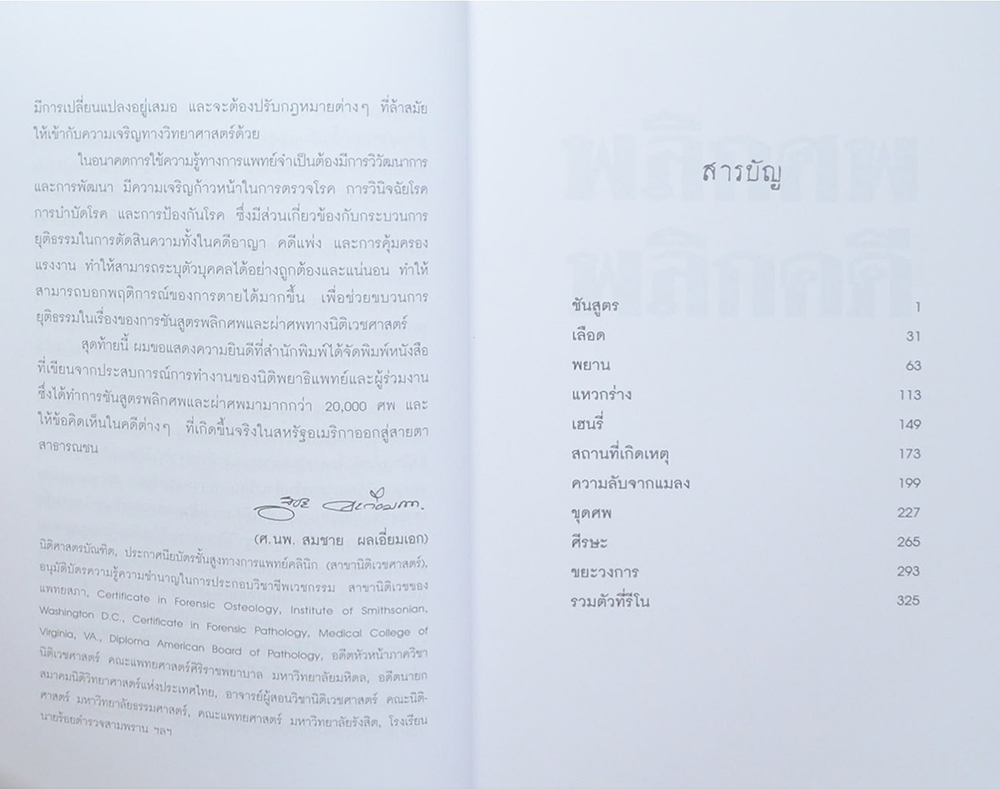 มีการเปลี่ยนแปลงอยู่เสมอ และจะต้องปรับกฎหมายต่างๆ ที่ล้าสมัย
ให้เข้ากับความเจริญทางวิทยาศาสตร์ด้วย
ในอนาคตการใช้ความรู้ทางการแพทย์จำเป็นต้องมีการวิวัฒนาการ
และการพัฒนา มีความเจริญก้าวหน้าในการตรวจโรค การวินิจฉัยโรค
การบำบัดโรค และการป้องกันโรค ซึ่งมีส่วนเกี่ยวข้องกับกระบวนการ
ยุติธรรมในการตัดสินความทั้งในคดีอาญา คดีแพ่ง และการคุ้มครอง
แรงงาน ทำให้สามารถระบุตัวบุคคลได้อย่างถูกต้องและแน่นอน ทำให้
สามารถบอกพฤติการณ์ของการตายได้มากขึ้น เพื่อช่วยขบวนการ
ยุติธรรมในเรื่องของการชันสูตรพลิกศพและผ่าศพทางนิติเวชศาสตร์
สุดท้ายนี้ ผมขอแสดงความยินดีที่สำนักพิมพ์ได้จัดพิมพ์หนังสือ
ที่เขียนจากประสบการณ์การทำงานของนิติพยาธิแพทย์และผู้ร่วมงาน
ซึ่งได้ทำการชันสูตรพลิกศพและผ่าศพมามากกว่า 20,000 ศพ และ
ให้ข้อคิดเห็นในคดีต่างๆ ที่เกิดขึ้นจริงในสหรัฐอเมริกาออกสู่สายตา
สาธารณชน
(ศ.นพ. สมชาย ผลเอี่ยมเอก)
นิติศาสตรบัณฑิต, ประกาศนียบัตรชั้นสูงทางการแพทย์คลินิก (สาขานิติเวชศาสตร์),
อนุมัติบัตรความรู้ความชำนาญในการประกอบวิชาชีพเวชกรรม สาขานิติเวชของ
แพทยสภา, Certificate in Forensic Osteology, Institute of Smithsonian,
Washington D.C., Certificate in Forensic Pathology, Medical College of
Virginia, VA., Diploma American Board of Pathology, อดีตหัวหน้าภาควิชา
นิติเวชศาสตร์ คณะแพทยศาสตร์ศิริราชพยาบาล มหาวิทยาลัยมหิดล, อดีตนายก
สมาคมนิติวิทยาศาสตร์แห่งประเทศไทย, อาจารย์ผู้สอนวิชานิติเวชศาสตร์ คณะนิติ-
ศาสตร์ มหาวิทยาลัยธรรมศาสตร์, คณะแพทยศาสตร์ มหาวิทยาลัยรังสิต, โรงเรียน
นายร้อยตำรวจสามพราน ฯลฯ
สารบัญ
ชันสูตร 1
เลือด 31
พยาน 63
แหวกร่าง 113
เฮนรี่ 149
สถานที่เกิดเหตุ 173
ความลับจากแมลง 199
ขุดศพ 227
ศีรษะ 265
ขยะวงการ 293
รวมตัวที่รีโน 325